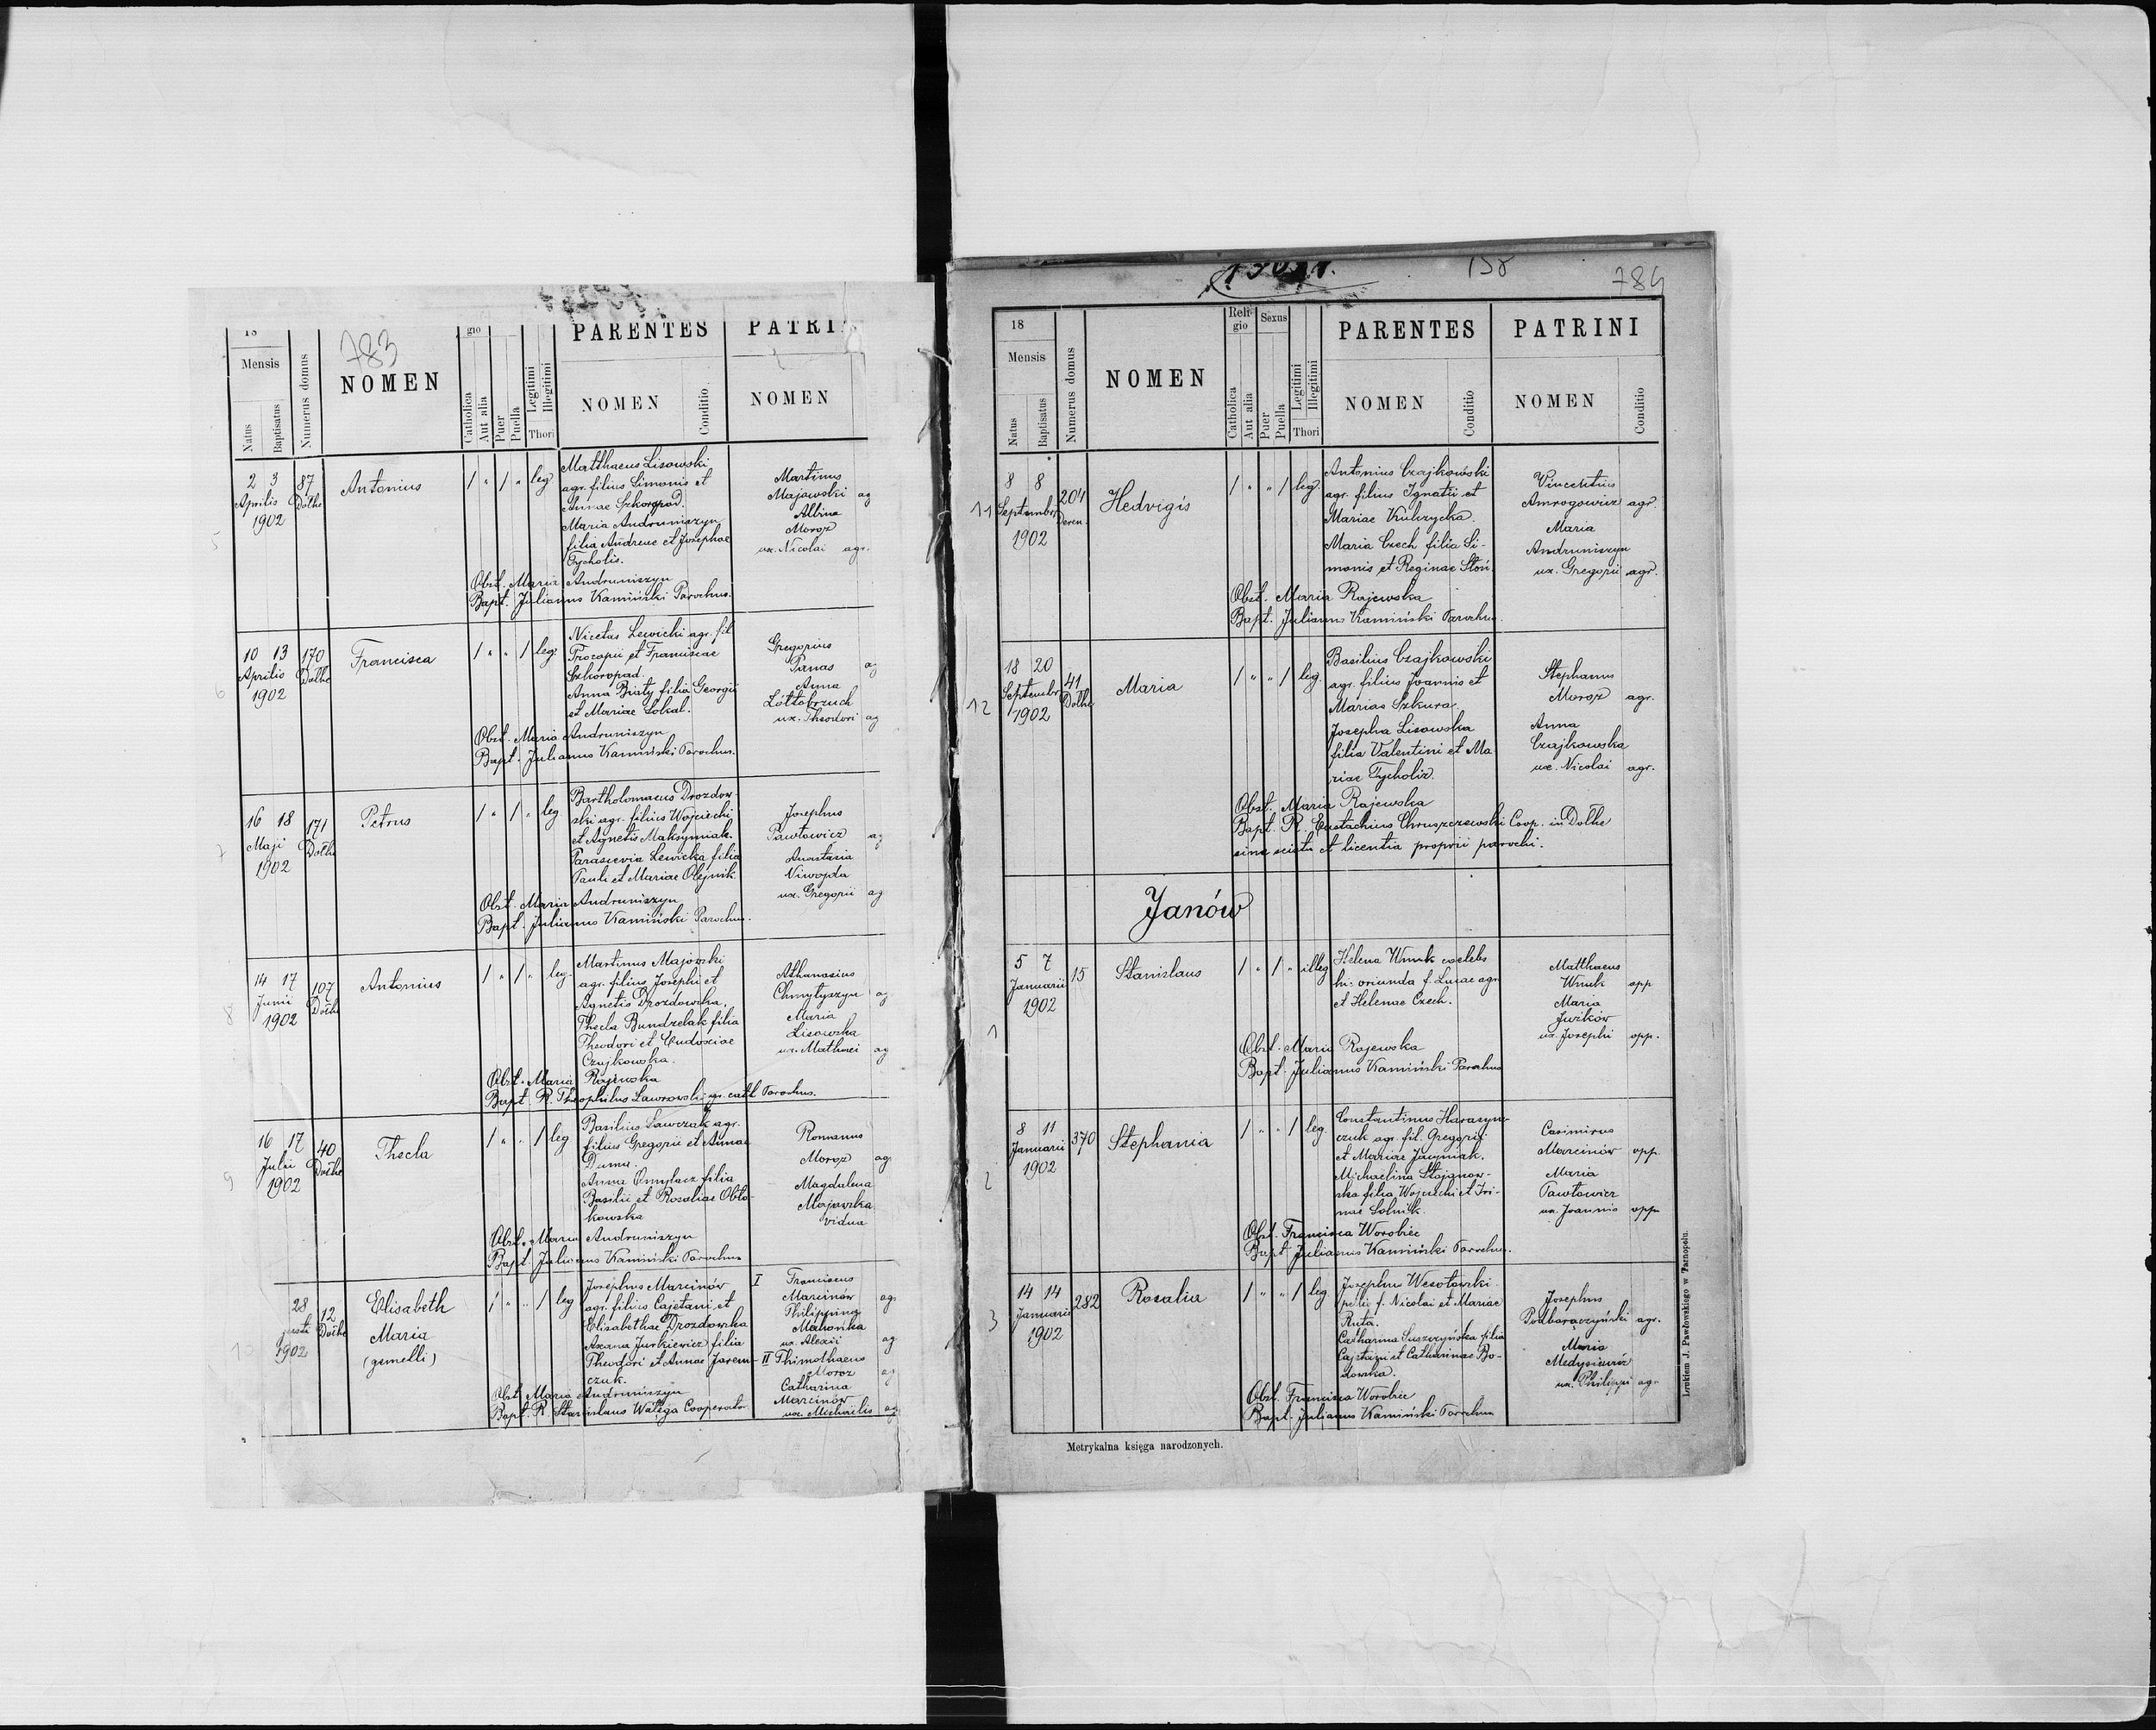 783
18
Mensis
Natus
Baptisatus
Numerus domus
NOMEN
gio
Catholica
Aut alia
Puer
Puella
Legitimi
Illegitimi
Thori
PARENTES
NOMEN
Conditio
PATRI
NOMEN
5
2 3
Aprilis
1902
87
Dołhe
Antonius
/ " / " leg
Matthaeus Lisowski
agr. filius Simonis et
Annae Szkoropad.
Maria Andruniszyn
filia Andreae et Josephae
Tycholis.
Martinus
Majowski ag
Albina
Moroz
ux. Nicolai agr.
Obst. Maria Andruniszyn
Bapt. Julianus Kamiński Parochus.
6
10 13
Aprilis
1902
170
Dołhe
Francisca
/ " " / leg.
Nicetas Lewicki agr. fil
Procopii et Franciscae
Szkoropad.
Anna Biały filia Georgii
et Mariae Sokal.
Gregorius
Panas ag
Anna
Żółtobrzuch
ux. Theodori ag
Obst. Maria Andruniszyn
Bapt. Julianus Kamiński Parochus.
7
16 18
Maji
1902
171
Dołhe
Petrus
/ " / " leg
Bartholomaeus Drozdow-
ski agr. filius Wojciechi
et Agnetis Maksymiak.
Parascevia Lewicka filia
Pauli et Mariae Olejnik.
Josephus
Pawłowicz ag
Anastasia
Niwojda
ux. Gregorii ag
Obst. Maria Andruniszyn
Bapt. Julianus Kamiński Parochus.
8
14 17
Junii
1902
107
Dołhe
Antonius
/ " / " leg.
Martinus Majowski
agr. filius Josephi et
Agnetis Drozdowska.
Thecla Bundzelak filia
Theodori et Eudoxiae
Czajkowska.
Athanasius
Chmytyszyn ag
Maria
Lisowska
ux. Mathaei ag
Obst. Maria Rajewska
Bapt. R. Theophilus Lawrowski gr. cath Parochus.
9
16 17
Julii
1902
40
Dołhe
Thecla
/ " " / leg
Basilius Lawczak agr.
filius Gregorii et Annae
Duma.
Anna
filia
Basilii et Rosaliae Obło-
kowska
Romanus
Moroz ag
Magdalena
Majowska
vidua
Obst. Maria Andruniszyn
Bapt. Julianus Kamiński Parochus
28
1902
12
Dołhe
Elisabeth
Maria
(gemelli)
/ " " / leg
Josephus Marcinów
agr. filius Cajetani et
Elisabethae Drozdowska
Axana Jurkiewicz filia
Theodori et Annae Jarem-
czuk.
I Franciscus
Marcinów ag
Philippina
Mahonka
ux. Alexii ag
II Thimothaeus
Moroz ag
Catharina
Marcinów
ux. Michaelis ag
Obst. Maria Andruniszyn
Bapt. R. Stanislaus Wałęga Cooperator
138
784
18
Mensis
Natus
Baptisatus
Numerus domus
NOMEN
Religio
Catholica
Aut alia
Sexus
Puer
Puella
Legitimi
Illegitimi
Thori
PARENTES
NOMEN
Conditio
PATRINI
NOMEN
Conditio
11
8 8
September
1902
204
Deren.
Hedvigis
/ " " / leg.
Antonius Czajkowski
agr. filius Ignatii et
Mariae Kulczycka.
Maria Czech filia Si-
monis et Reginae Słoń.
Vincentius
Amrogowicz agr.
Maria
Andruniszyn
ux. Gregorii agr.
Obst. Maria Rajewska
Bapt. Julianus Kamiński Parochus.
12
18 20
Septembr
1902
41
Dołhe
Maria
/ " " / leg.
Basilius Czajkowski
agr. filius Joannis et
Mariae Szkura.
Josepha Lisowska
filia Valentini et Ma
riae Tycholiz.
Stephanus
Moroz agr.
Anna
Czajkowska
ux. Nicolai agr.
Obst. Maria Rajewska
Bapt. R. Eustachius Chruszczewski Coop. in Dołhe
sine scitu et licentia proprii parochi.
Janów
1
5 7
Januarii
1902
15
Stanislaus
/ " / " illeg
Helena Wnuk coelebs
hi: oriunda f. Lucae agr
et Helenae Czech.
Matthaeus
Wnuk opp
Maria
Jwików
ux. Josephi opp.
Obst. Maria Rajewska
Bapt. Julianus Kamiński Parochus
2
8 11
Januarii
1902
370
Stephania
/ " " / leg.
Constantinus Harasym-
czuk agr. fil. Gregorii
et Mariae
Michaelina Stojanow-
ska filia Wojciechi et Iri-
nae Solnik.
Casimirus
Marcinów opp.
Maria
Pawłowicz
ux. Joannis opp
Obst. Francisca Worobec
Bapt. Julianus Kamiński Parochus.
3
14 14
Januarii
1902
282
Rosalia
/ " " / leg
Josephus Wesołowski
pellio f. Nicolai et Mariae
Ruta.
Catharina Suszczyńska filia
Cajetani et Catharinae Bo-
dowska.
Josephus
Podhoraczyński agr.
Maria
Medysiewicz
ux. Philippi agr.
Obst. Francisca Worobec
Bapt. Julianus Kamiński Parochus
Metrykalna księga narodzonych.
Drukiem J. Pawłowskiego w Tarnopolu.